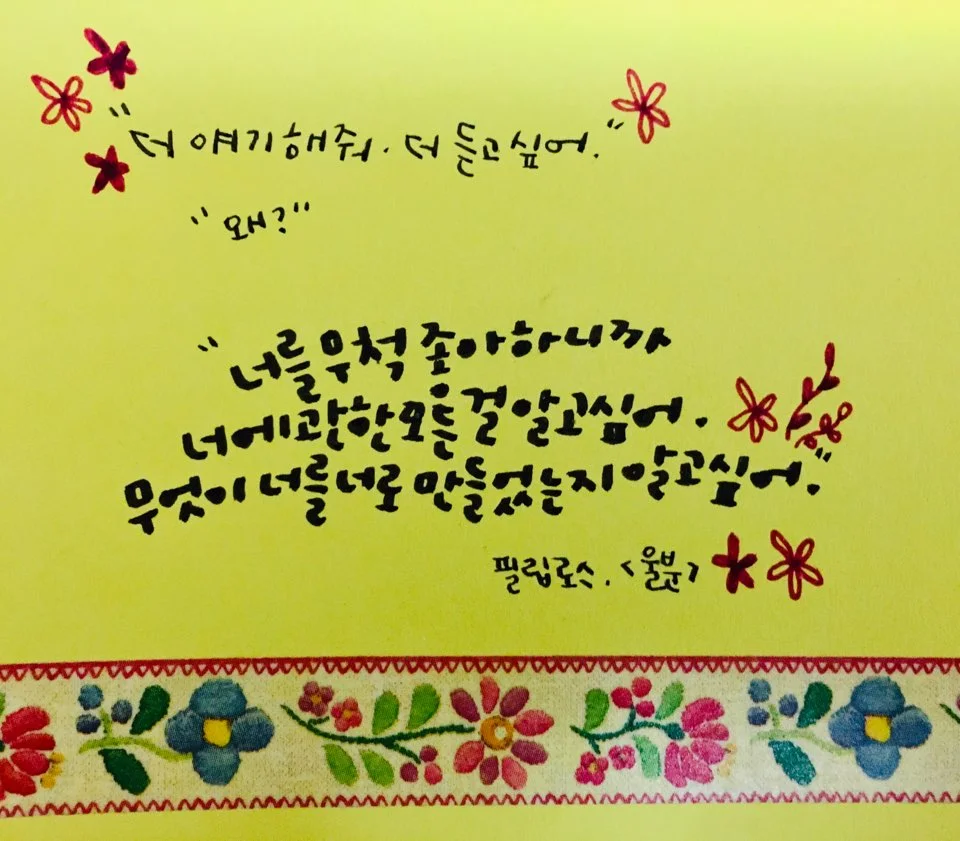 "더 얘기해줘. 더 듣고싶어."
"왜?"
"너를 무척 좋아하니까
너에 관한 모든 걸 알고싶어.
무엇이 너를 너로 만들었는지 알고싶어."
필립로스. <울분>